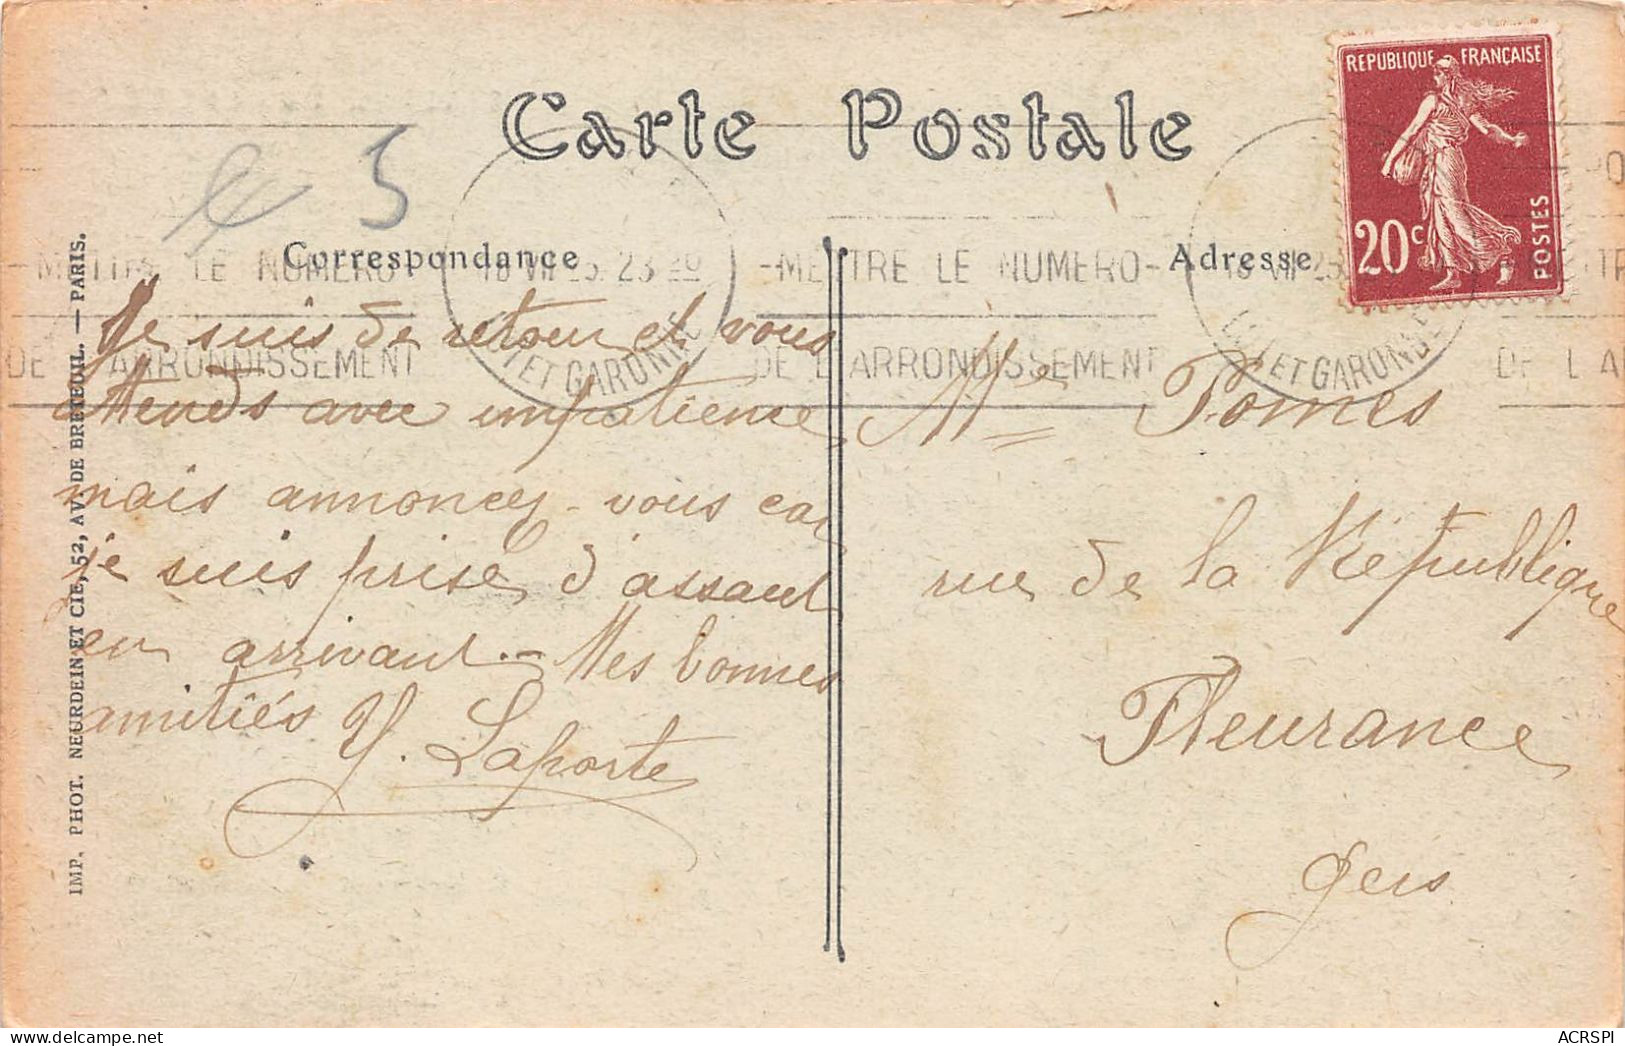 Carte Postale
REPUBLIQUE FRANÇAISE
20c
POSTES
5
Correspondance
Adresse
METTRE LE NUMERO
DE L'ARRONDISSEMENT
18 VII 25. 23 20
LOT ET GARONNE
-METTRE LE NUMERO-
DE L'ARRONDISSEMENT
LOT ET GARONNE
DE L A
Je suis de retour et vous
attends avec impatience
mais annoncez-vous car
je suis prise d'assaut
en arrivant. - Mes bonnes
amitiés Y. Laporte
Mme Pomès
rue de la République
Fleurance
Gers
IMP. PHOT. NEURDEIN ET CIE, 52, AV. DE BRETEUIL. — PARIS.
ACRSPI